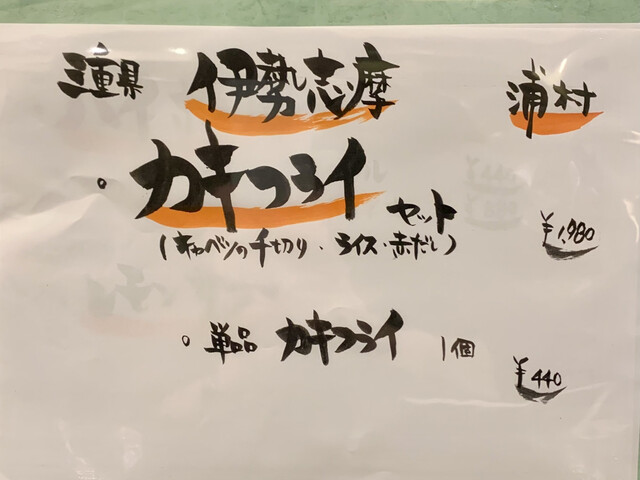 三重県 伊勢志摩 浦村
。カキフライセット
(キャベツの千切り・ライス・赤だし) ¥1,980
。単品 カキフライ 1個
¥440